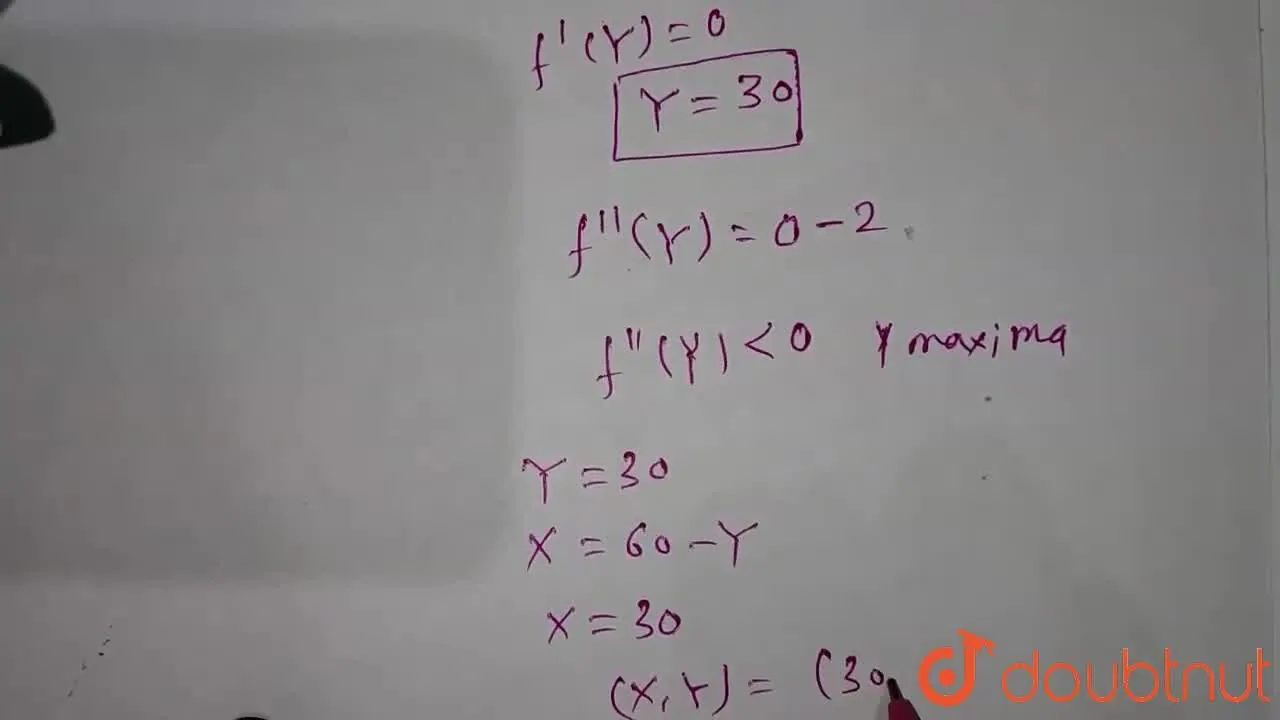 f'(Y) = 0
Y = 30
f''(Y) = 0 - 2
f''(Y) < 0 Y maxima
Y = 30
X = 60 - Y
X = 30
(X, Y) = (30
doubtnut